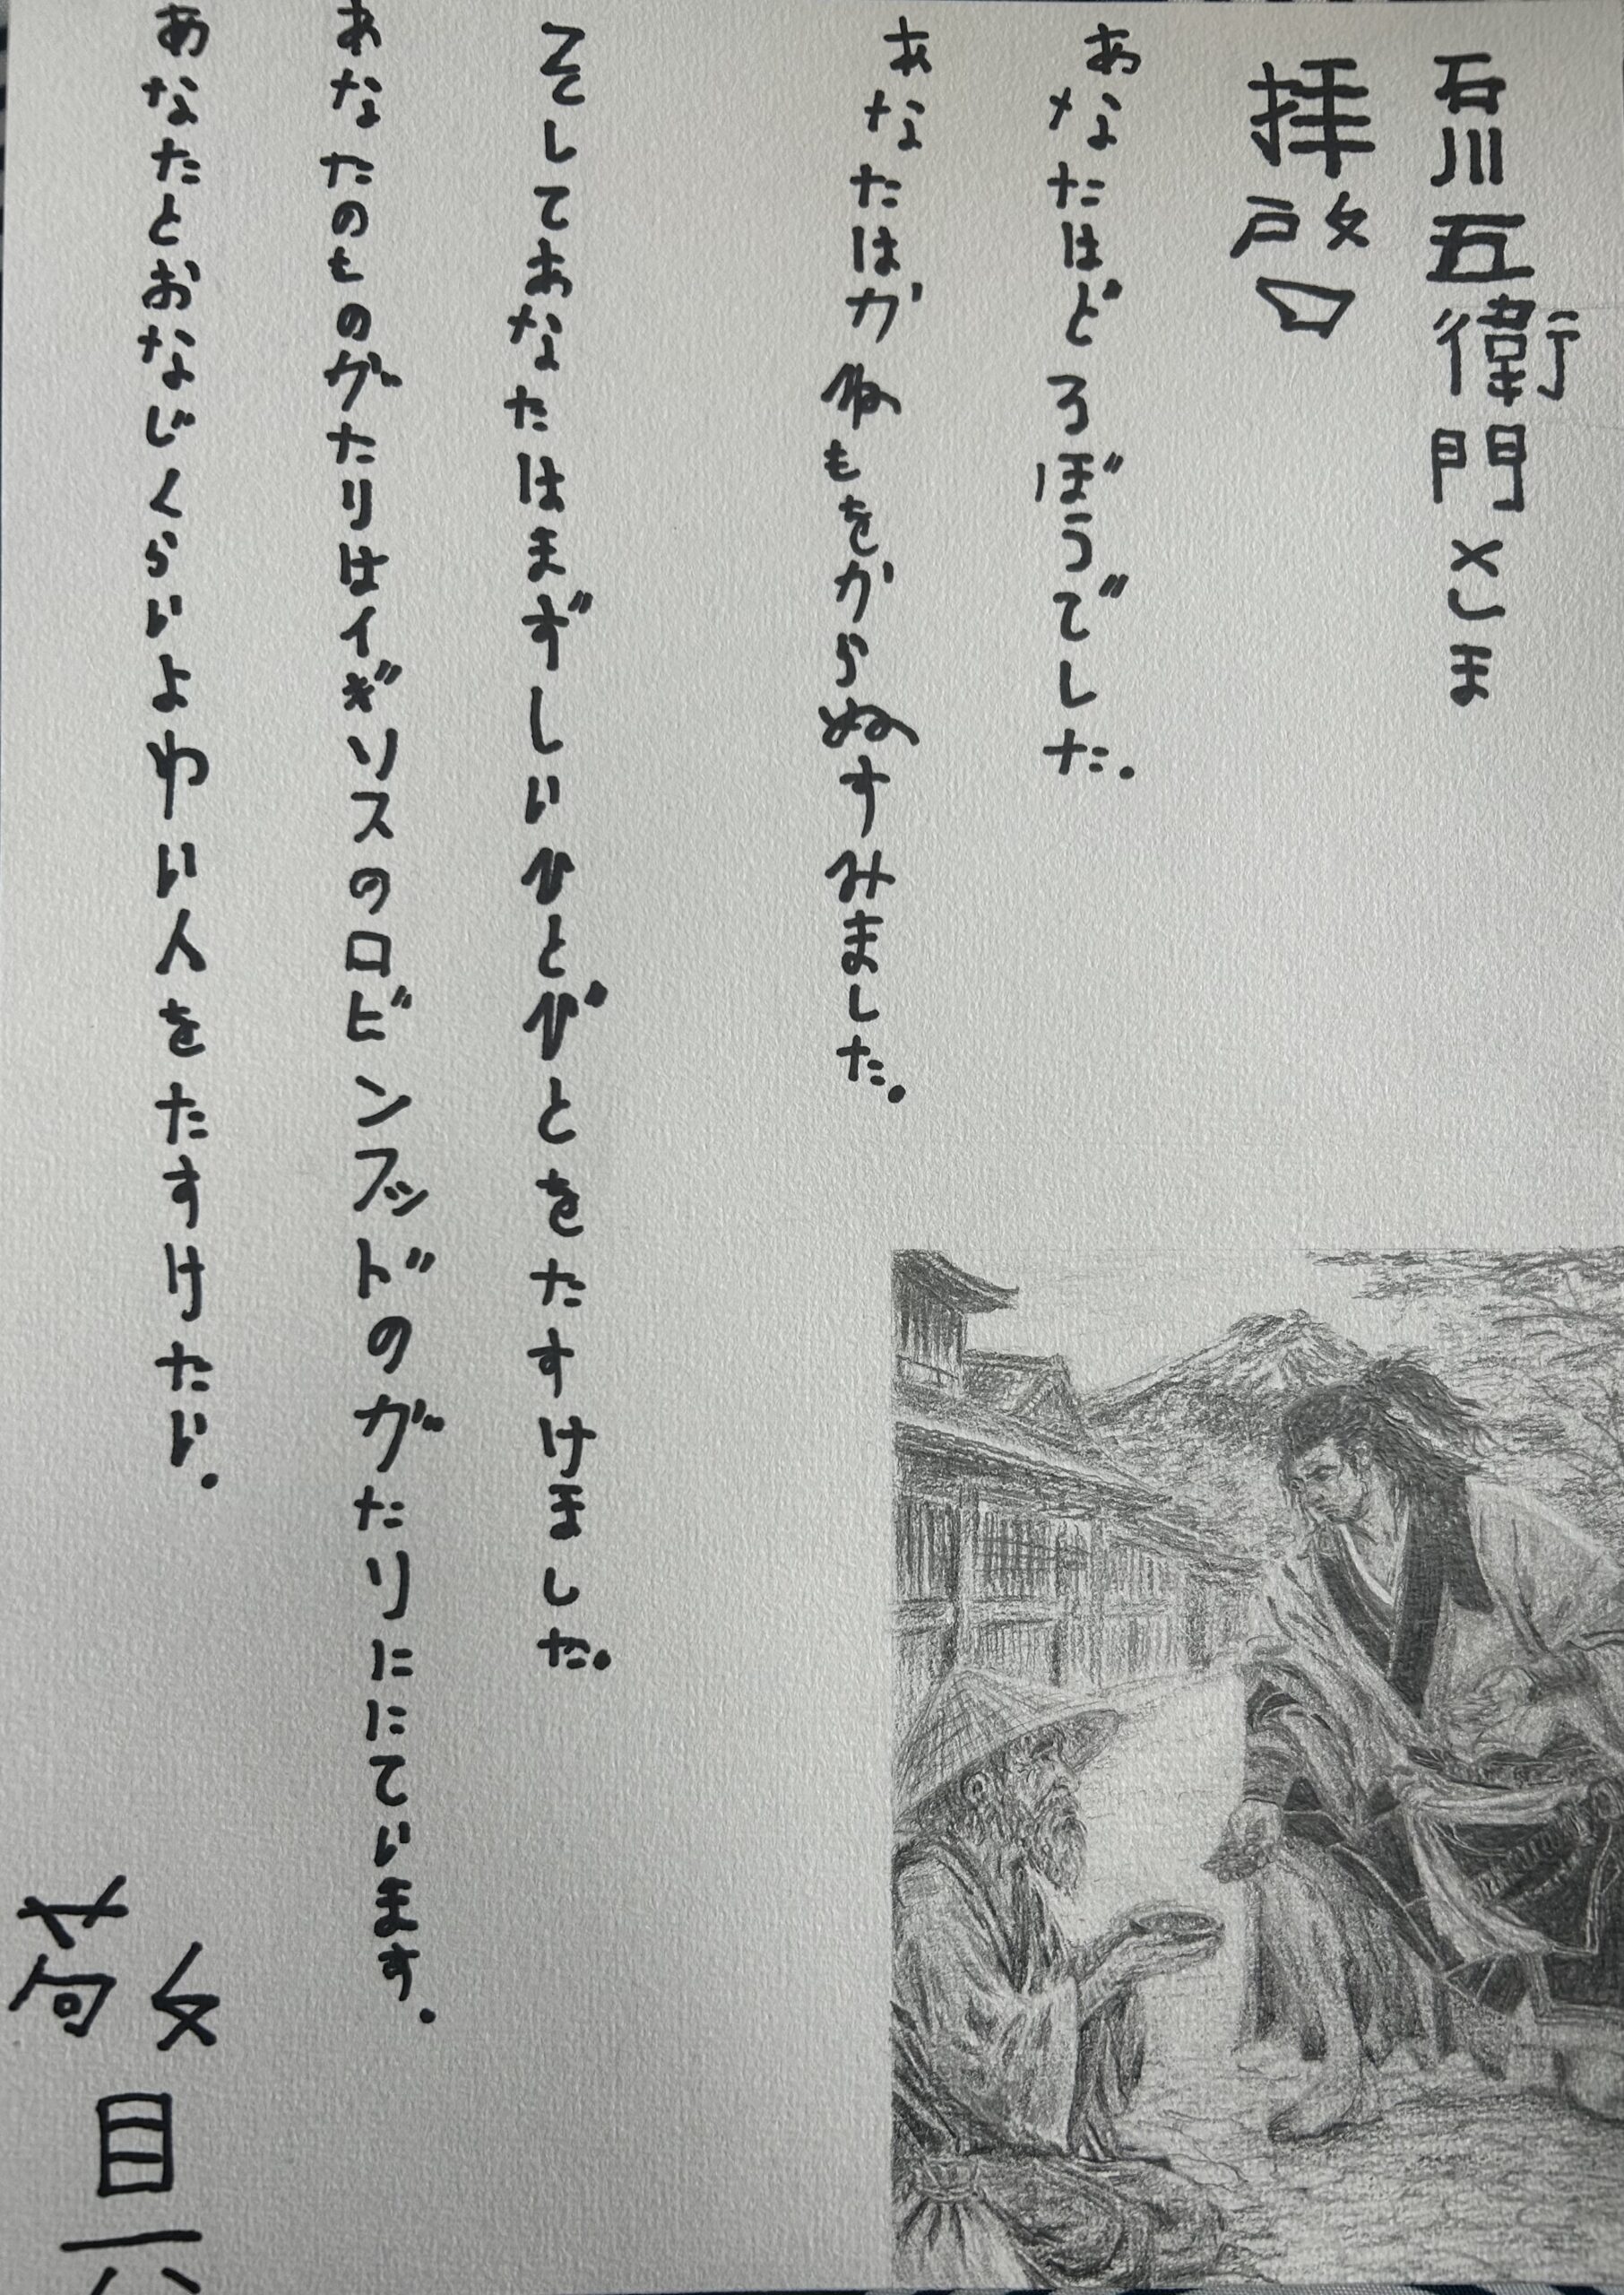 石川五衛門さま
拝啓
あなたはどろぼうでした.
あなたはかねもをからぬすみました.
そしてあなたはまずしいひとびとをたすけました.
あなたのものがたりはイギリスのロビンフッドのがたりににています.
あなたとおなじくらいよわい人をたすけたい.
敬具